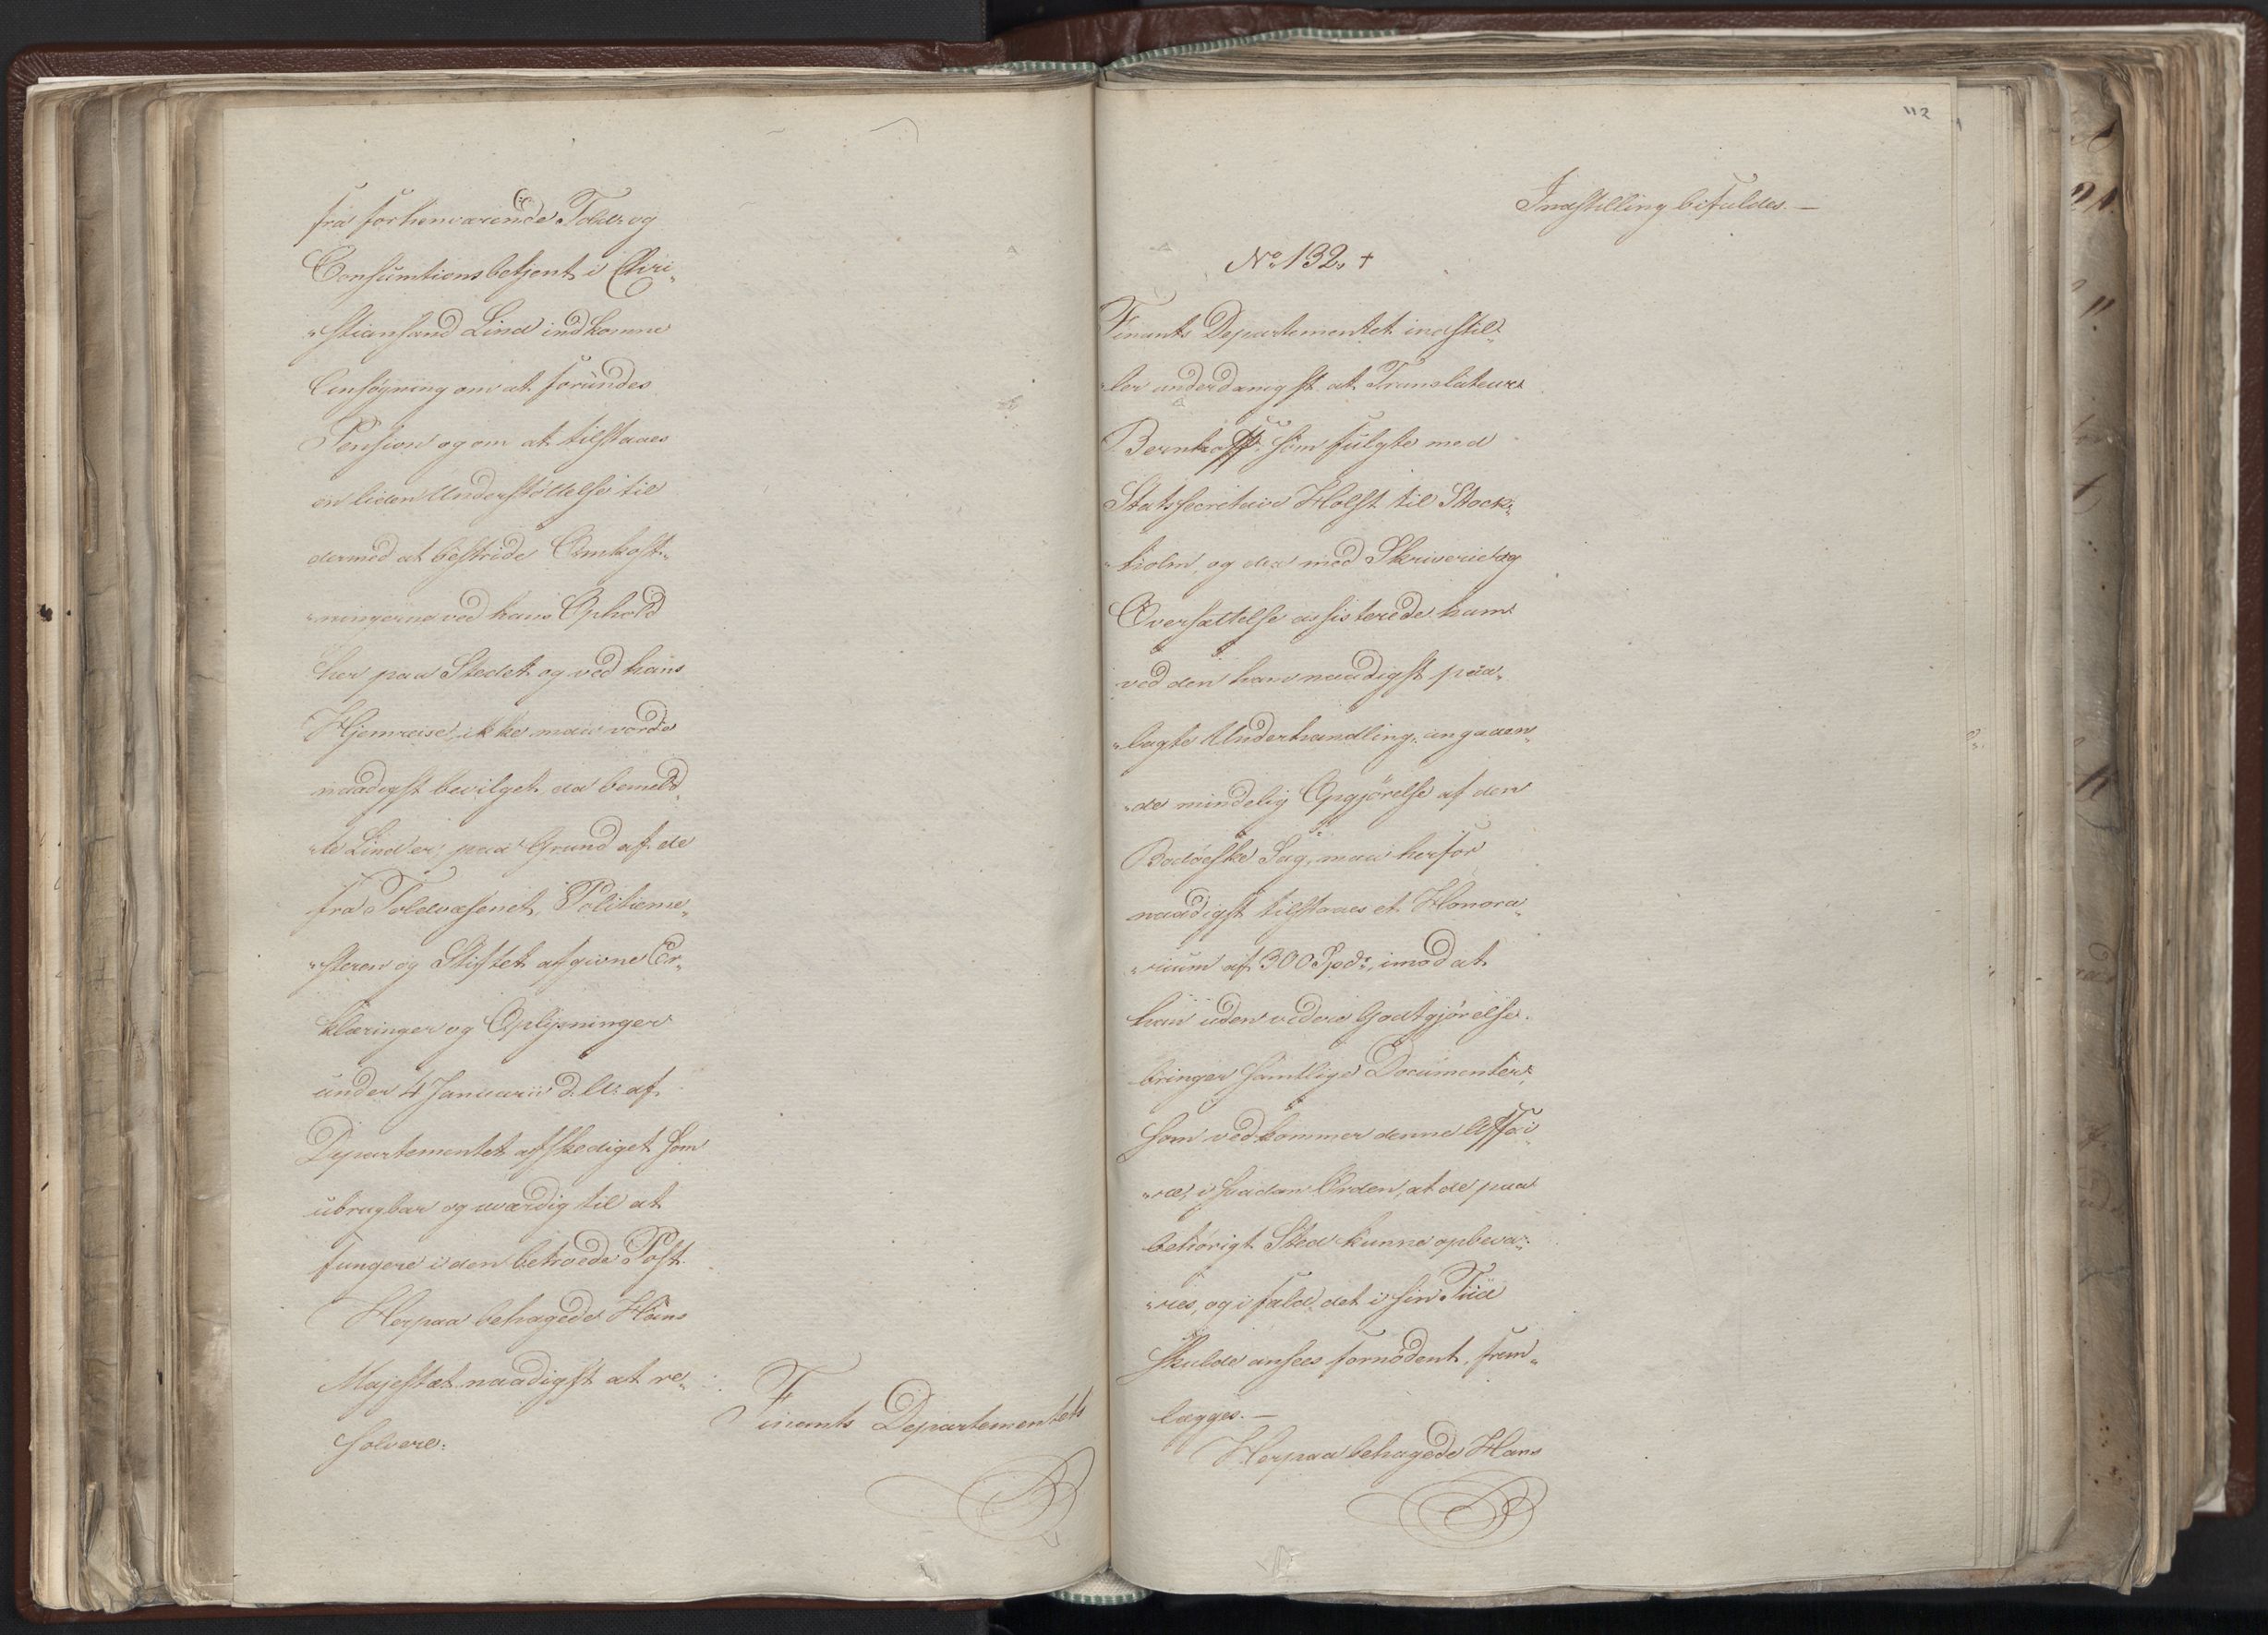 fra forhenværende Told- og
Consumtionsbetjent i Chri-
"stiansand Lind indkomne
Ansøgning om at forundes
Pension og om at tilstaaes
en liden Understøttelse til
dermed at bestride Omkost-
"ningerne ved hans Ophold
her paa Stedet og ved hans
Hjemreise, ikke maa vorde
naadigst bevilget, da bemeld-
"te Lind er, paa Grund af de
fra Toldvæsenet, Politieme-
"steren og Stiftet afgivne Er-
klæringer og Oplysninger
under 4 Januarii d. A. af
Departementet afskediget som
ubrugbar og uværdig til at
fungere i den betroede Post.
Herpaa behagede Hans
Majestæt naadigst at re-
solvere:
Finants Departementets
112
Indstilling bifaldes. —
No 132. +
Finants Departementet indstil-
"ler underdanigst at Translateur
Bernhoft som fulgte med
Statssecretair Holst til Stock-
"holm, og der med Skriverie og
Oversættelse assisterede ham
ved den ham naadigst paa-
"lagte Underhandling angaaen-
"de mindelig Opgjørelse af den
Bodøeske Sag, maa herfor
naadigst tilstaaes et Honora-
"rium af 300 Spdr, imod at
han uden videre Godtgjørelse
bringer samtlige Documenter,
som vedkommer denne Affai-
"re, i saadan Orden, at de paa
behørigt Sted kunne opbeva-
"res, og i fald det i sin Tiid
skulde ansees fornødent, frem-
lægges. —
Herpaa behagede Hans